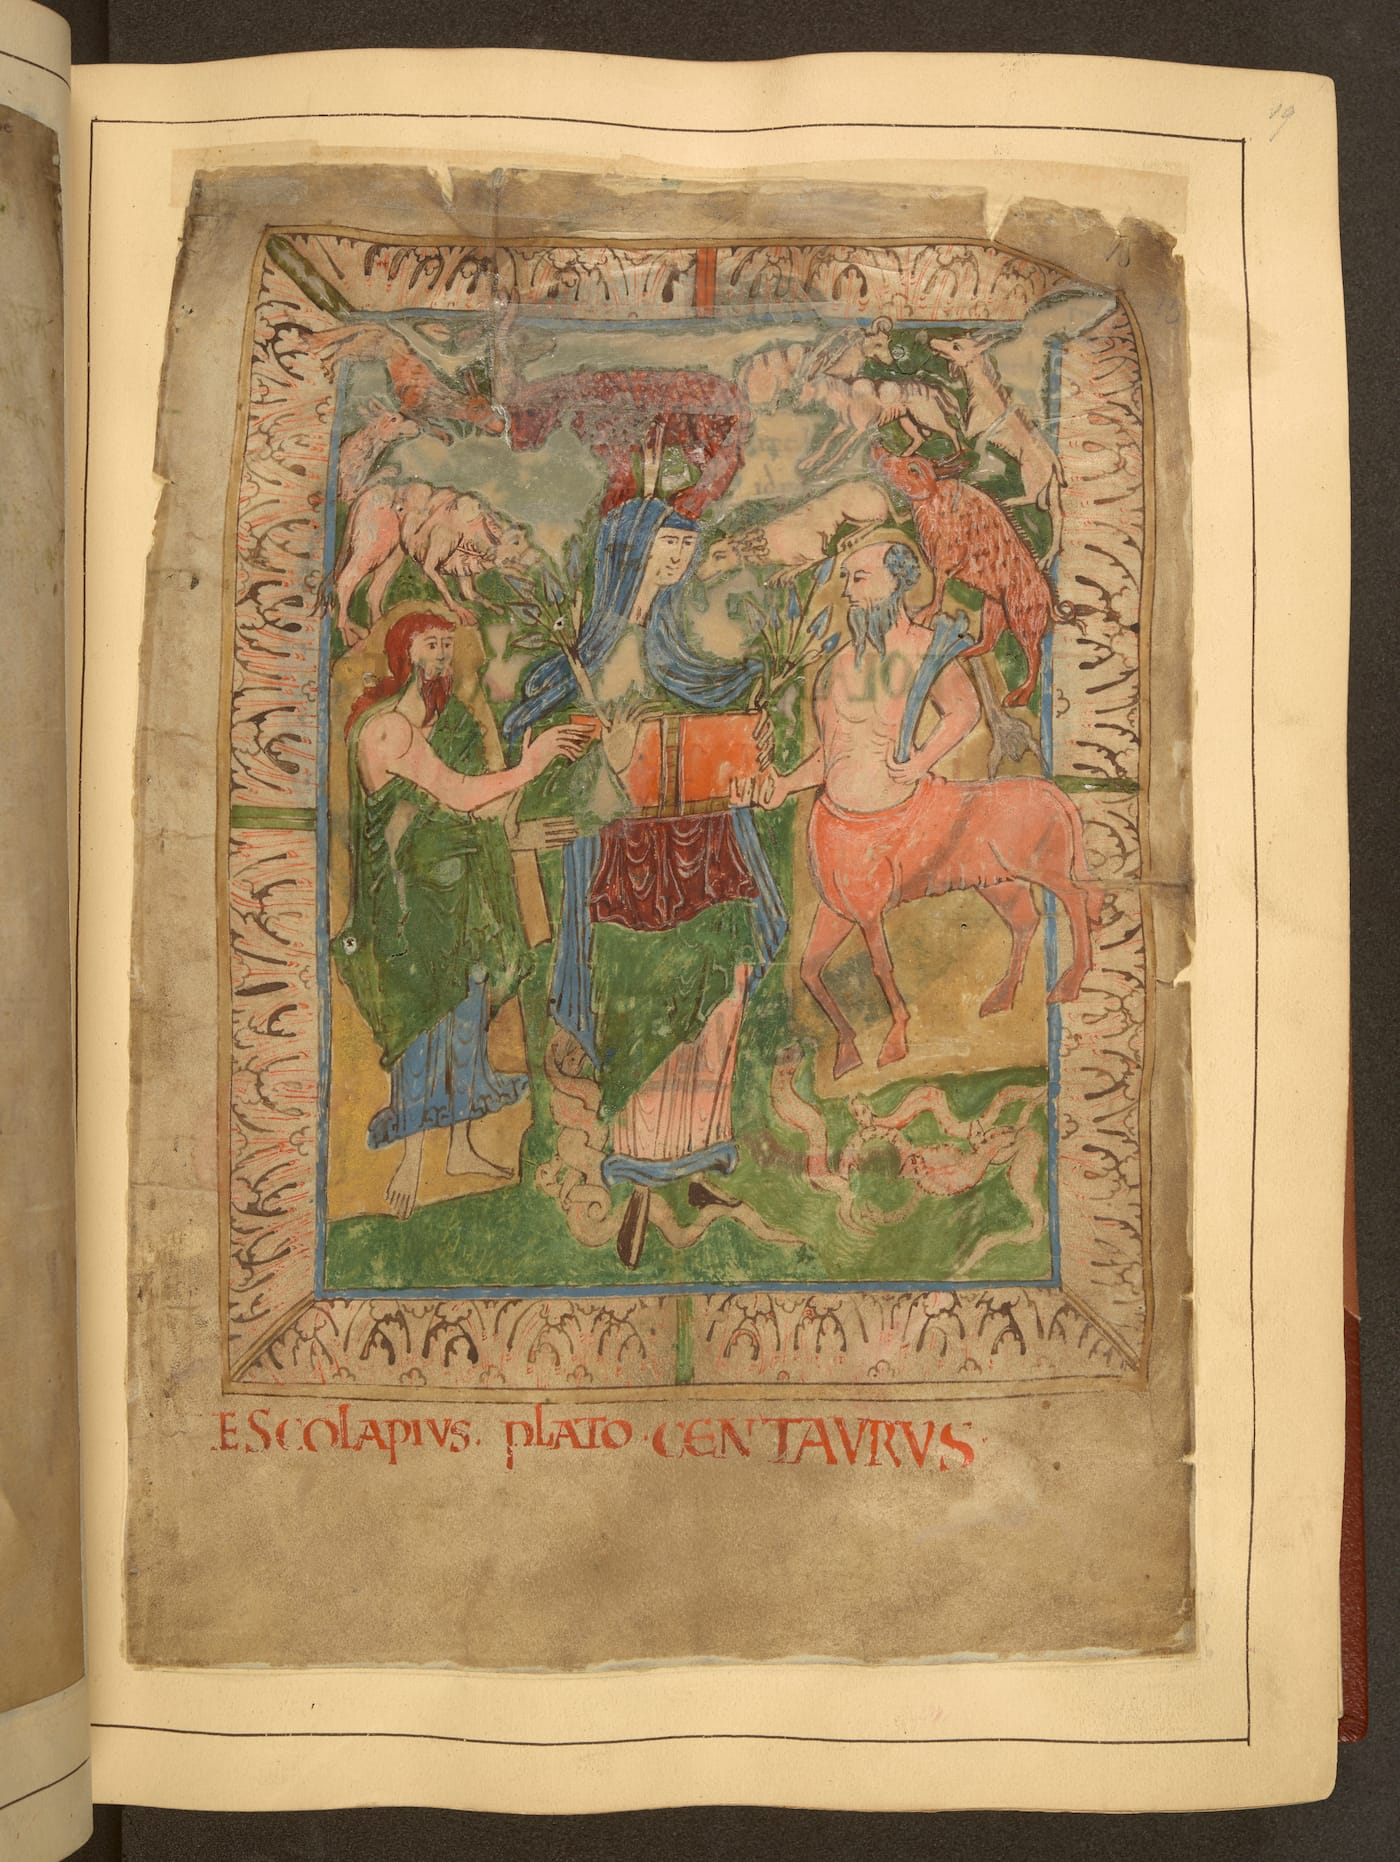 19
ESCOLAPIVS. PLATO. CENTAVRVS.